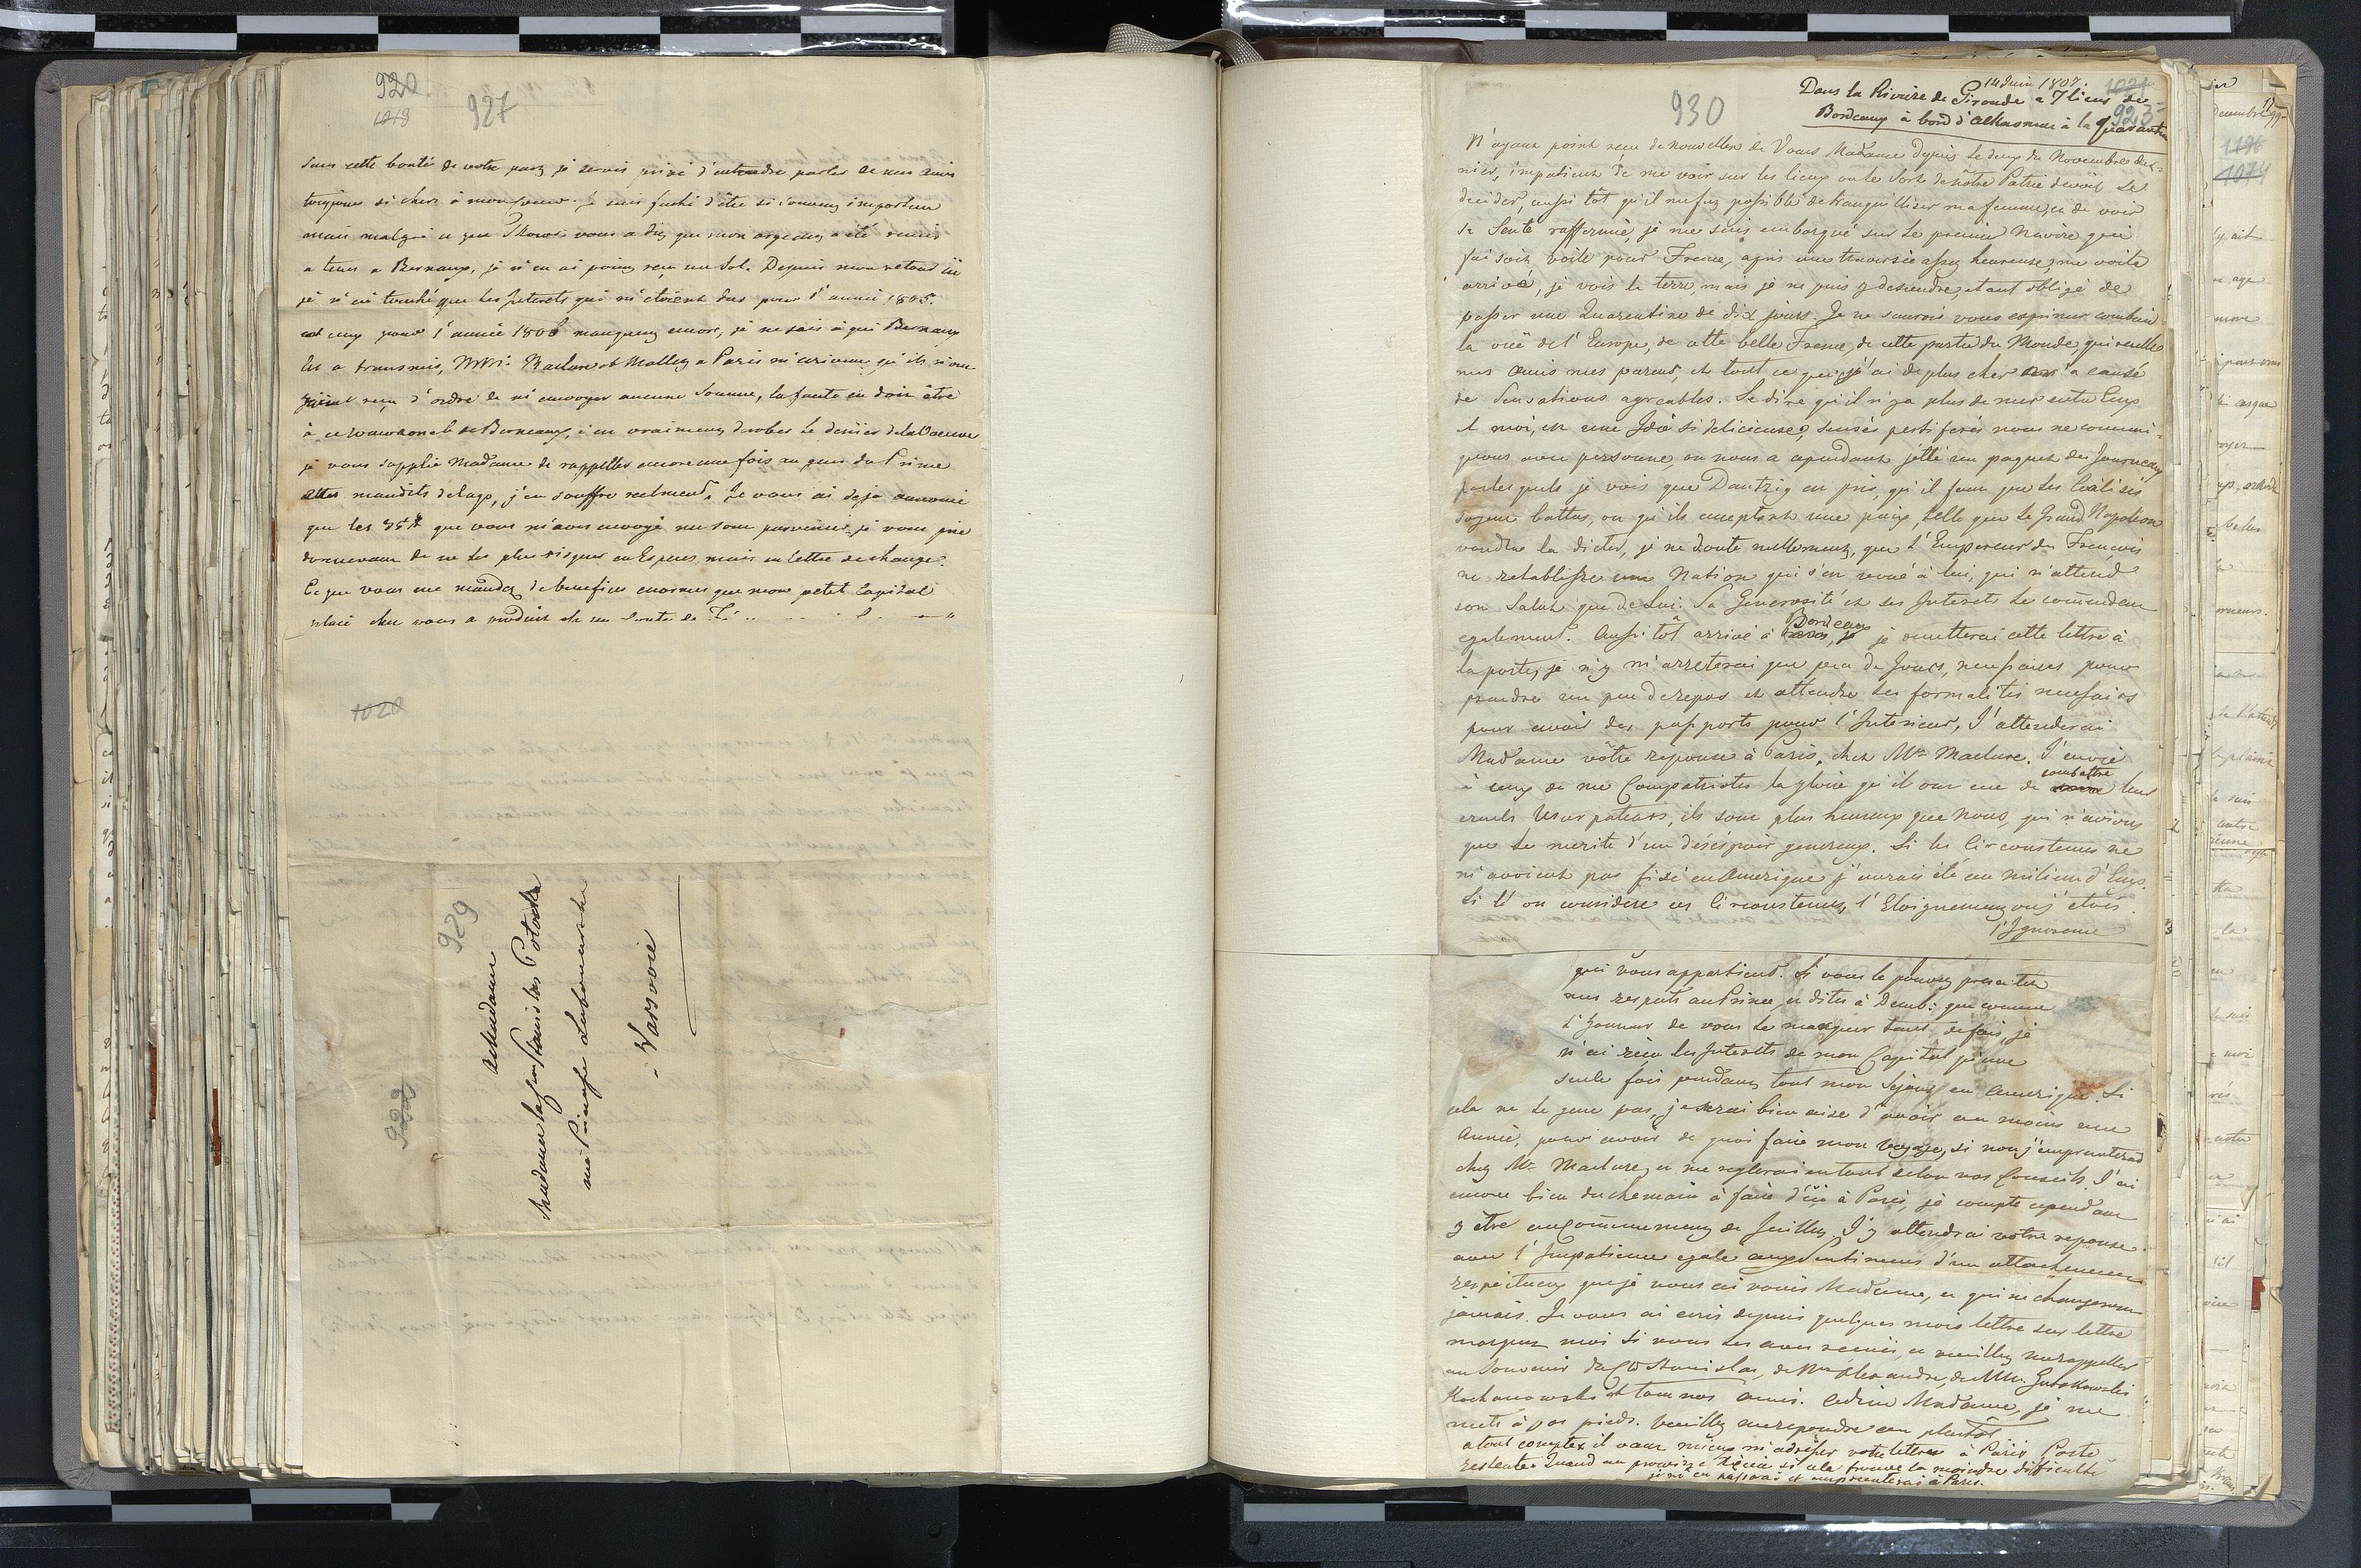 920
1019
927
sans cette bonté de votre part je serois privé d'entendre parler de mes amis
toujours si chers à mon coeur. je suis faché d'être si souvent importun
mais malgré ce que vous a dit que mon argent a été remis
a tems a Bernaux, je n'en ai point reçu un sol. Depuis mon retour ici
je n'ai touché que les Interets qui m'étoient dus pour l'année 1805.
et ceux pour l'année 1806 manquent encore, je ne sais à qui Bernaux
les a transmis, Maclure et à Paris m'ecrivent qu'ils n'ont
point reçu d'ordre de m'envoyer aucune Somme, la faute en doit être
à ce de Bernaux, c'est vraiment derober le denier de la Veuve
je vous supplie Madame de rappeller encore une fois au gens du Prince
ces maudits delays, j'en souffre reelment. Je vous ai deja annoncé
que les 35 # que vous m'aves envoyé me sont parvenus, je vous prie
dorenavant de ne les plus risquer en Especes, mais en lettre de change.
Ce que vous me mandez de benefices enormes que mon petit Capital
placé chez vous a produit
1020
929
922
à Madame
Madame la Stanislas Potocka
née Princesse Lubomirska
à Varsovie
930
14 Juin 1807.
1021
923
Dans la Riviere de Gironde a 7 lieus de
Bordeaux à bord d' à la Quarantaine
N'ayant point reçu de nouvelles de Vous Madame depuis le deux du Novembre der-
nier, impatient de me voir sur les lieux ou le Sort de nôtre Patrie devoit se
decider, aussi tôt qu'il me fut possible de tranquilliser ma femme, et de voir
sa Santé raffermie, je me suis embarqué sur le premier Navire qui
faisoit voile pour France, après une traversée assez heureuse, me voila
arrivé, je vois la terre, mais je ne puis y descendre, etant obligé de
passer une Quarentine de dix jours. Je ne saurois vous exprimer combien
la vüe de l'Europe, de cette belle France, de cette partie du Monde, qui recelle
mes Amis mes parens, et tout ce que j'ai de plus cher m'a causé
de Sensations agreables. Se dire qu'il n'y a plus de mer entre Eux
et moi, est une Idée si delicieuse, sensés pestiferés nous ne communi-
quons avec personne, on nous a cependant jetté un paquet des Journeaux
par lesquels je vois que Dantzig est pris, qu'il faut que les Coälisés
soyent battus, ou qu'ils acceptent une paix, telle que le Grand Napoleon
voudra la dicter, je ne doute nullement, que l'Empereur des Francois
ne retablisse une Nation qui s'est voué à lui, qui n'attend
son Salut que de Lui. Sa Generosité et ses Interets le comendent
egalement. Aussi tôt arrivé à Bordeaux je remetterai cette lettre à
la poste, je n'y m'arreterai que peu de Jours, necessaires pour
prendre un peu de repos et attendre les formalités necessairs
pour avoir des passports pour l'Interieur, J'attenderai
Madame vôtre reponse à Paris, chez Mr Maclure. J'envie
à ceux de me Compatriotes la gloire qu'il ont eue de combattre leur
cruels Usurpateurs, ils sont plus heureux que nous, qui n'avions
que le merite d'un désespoir genereux. Si les Circonstences ne
m'avoient pas fixé en Amerique j'aurais été au milieu d'Eux.
Si l'on considere ces Circonstences, l'Eloignement ou j'etois
l'Ignorence
qui vous appartient. Si vous le pouvez presentez
mes respects au Prince et dites à Demb: que comme
l'honneur de vous le marquer tant de fois, je
n'ai reçu les Interets de mon Capital qu'une
seule fois pendant tout mon Sejour en Amerique. Si
cela ne le gene pas, je serai bien aise d'avoir au moins une
Année, pour avoir de quoi faire mon voyage, si non j'emprunterai
chez Mr Maclure, et me reglerai en tout selon vos Conseils. J'ai
encore bien du chemin à faire d'ici à Paris, je compte cependant
y être au Commencement de Juillet, J'y attendrai votre reponse
avec l'Impatience egale aux Sentimens d'un attachement
respectueux que je vous ai voués Madame, et qui ne changeront
jamais. Je vous ai ecris depuis quelques mois lettre sur lettre
marquez moi si vous les avez recües, et veuillez me rappeller
au Souvenir du Cte Stanislas, de Mr Alexandre, de MM. Gutakowski
Kochanowski et tous nos amis. Adieu Madame, je me
mets à vos pieds. Veuillez me repondre au plutôt
a tout compter il vaut mieux m'adresser votre lettre à Paris Poste
restante. Quand au si cela trouve la moindre difficulté
je m'en passerai et emprunterai à Paris.